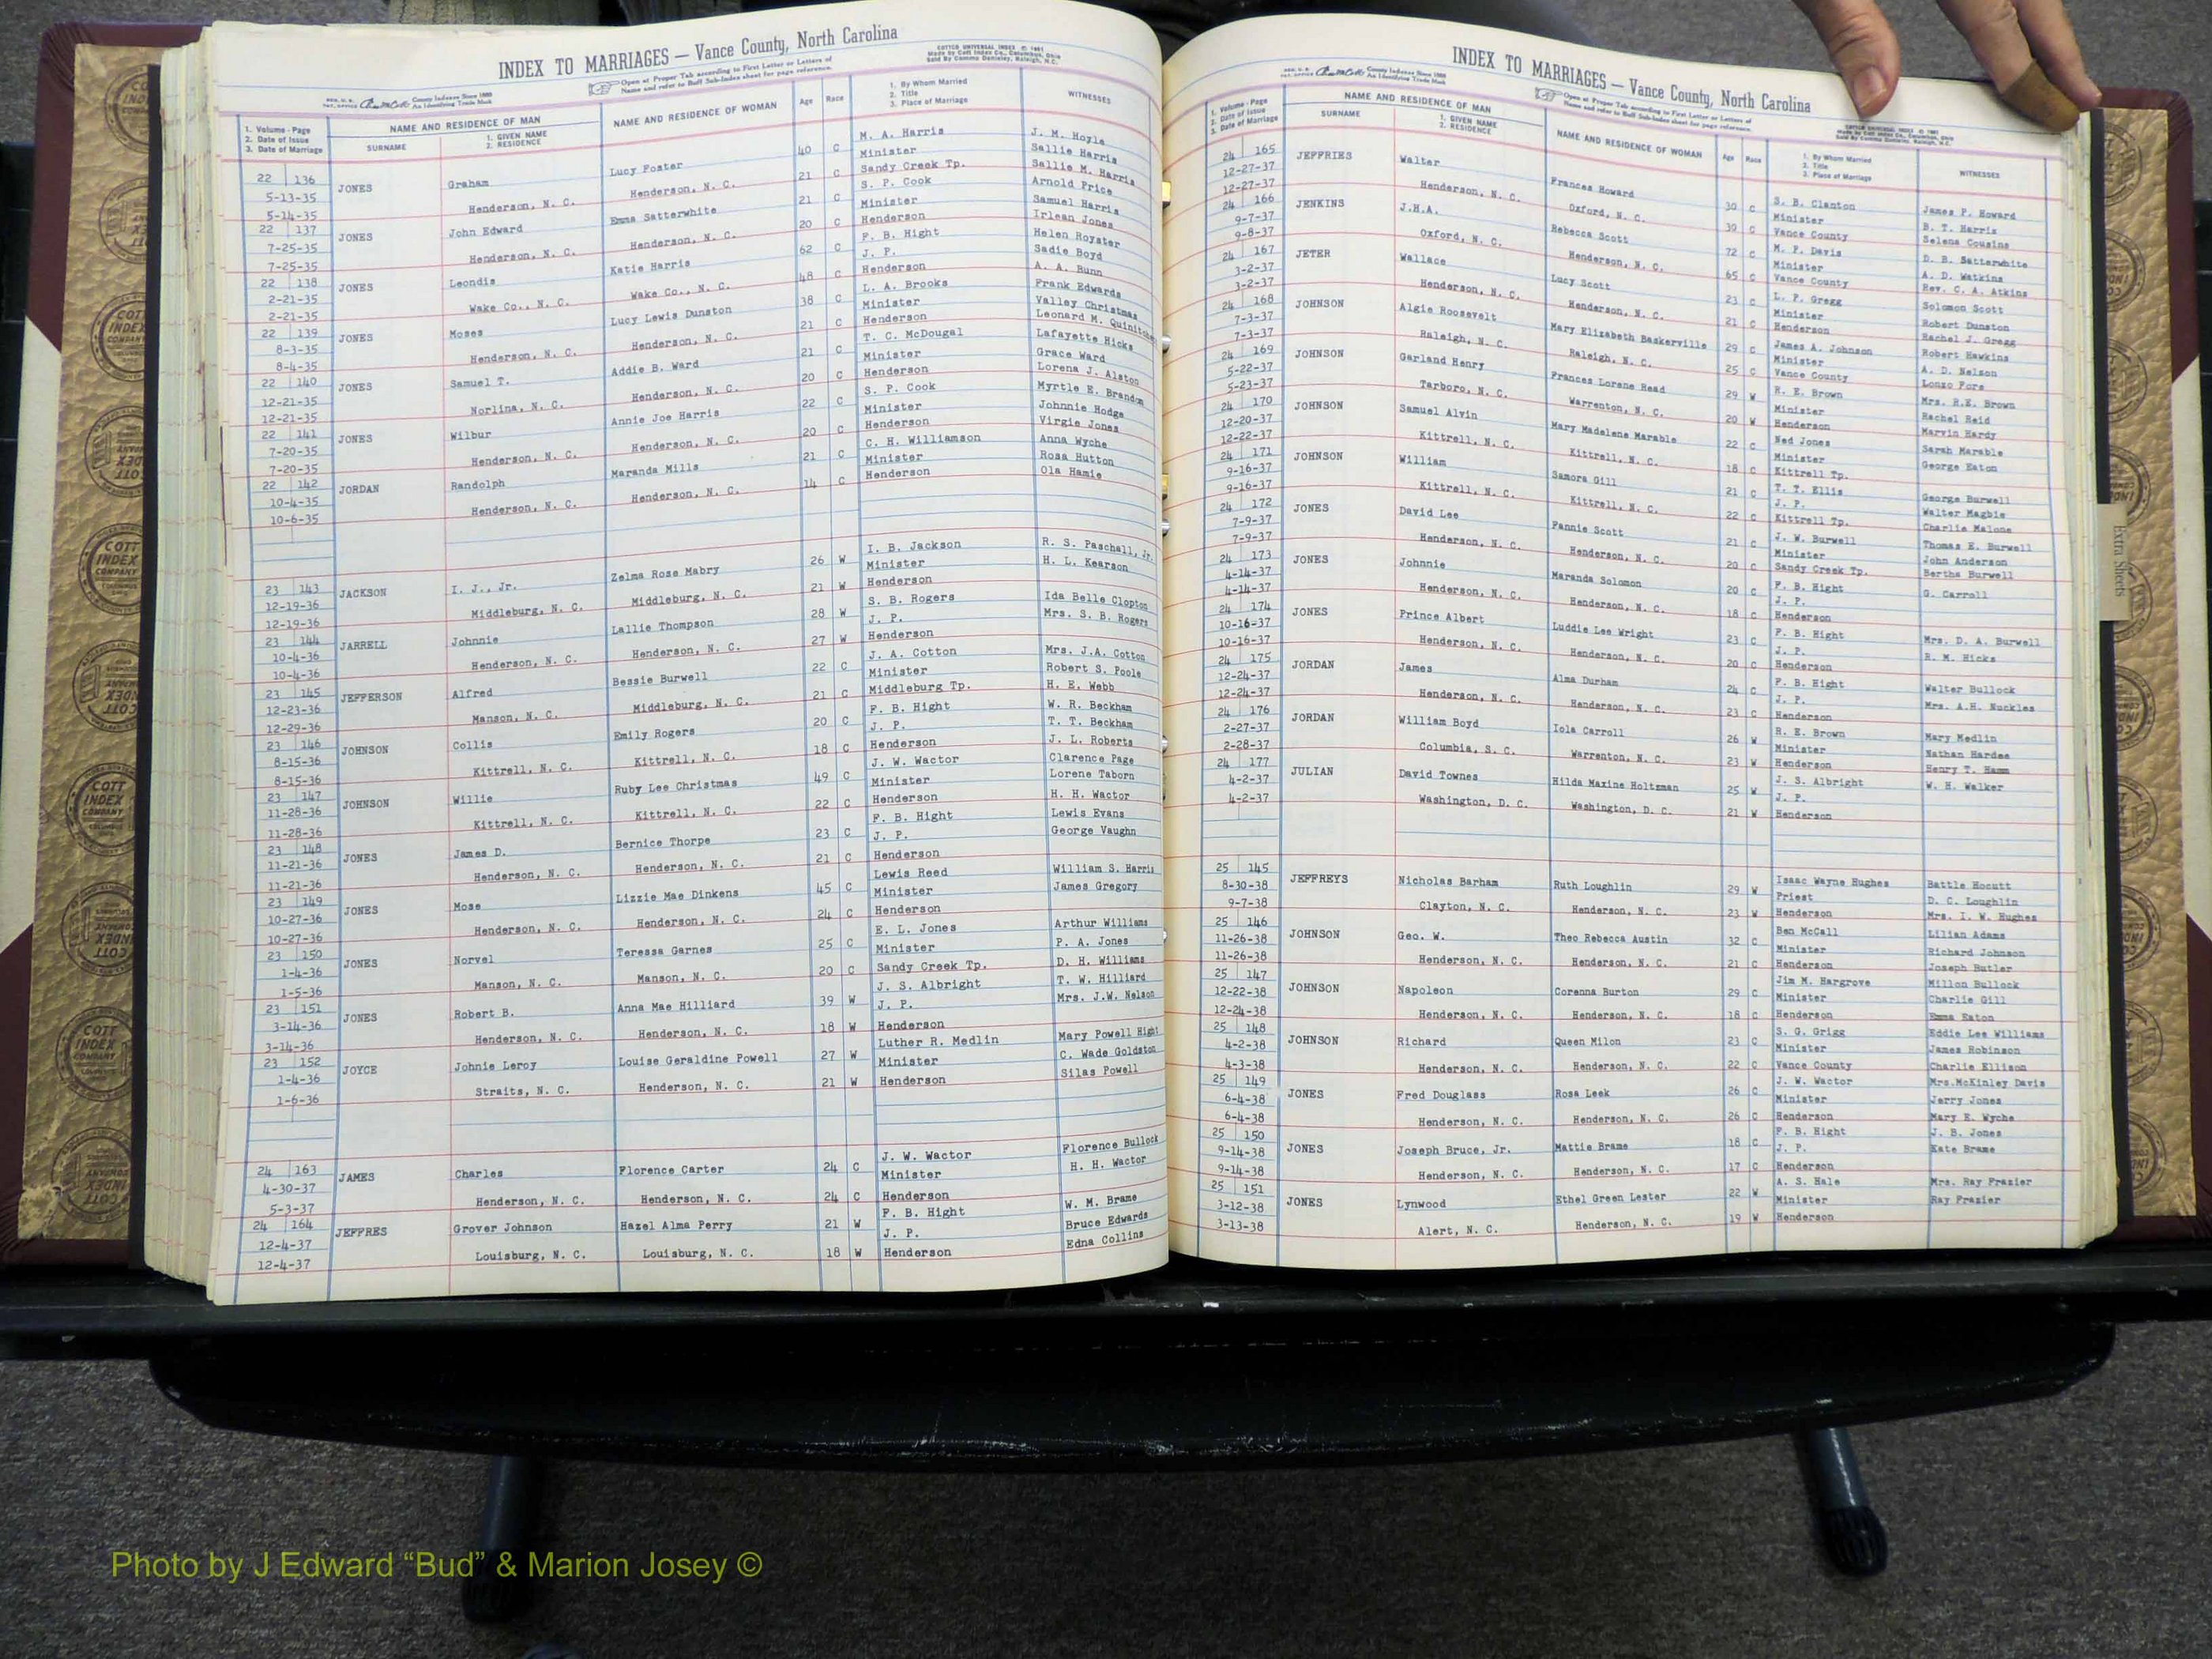 INDEX TO MARRIAGES — Vance County, North Carolina
COTTCO UNIVERSAL INDEX © 1961
Made by Cott Index Co., Columbus, Ohio
County Indexes Since 1888
An Identifying Trade Mark
Open at Proper Tab according to First Letter or Letters of
Name and refer to Buff Sub-Index sheet for page reference.
1. Volume - Page
2. Date of Issue
3. Date of Marriage
NAME AND RESIDENCE OF MAN
SURNAME
1. GIVEN NAME
2. RESIDENCE
NAME AND RESIDENCE OF WOMAN
Age Race
1. By Whom Married
2. Title
3. Place of Marriage
WITNESSES
22 136 JONES Graham Lucy Foster 40 C M. A. Harris J. M. Hoyle
5-13-35 Henderson, N. C. Henderson, N. C. 21 C Minister Sallie Harris
5-14-35 Sandy Creek Tp. Sallie M. Harris
22 137 JONES John Edward Emma Satterwhite 21 C S. P. Cook Arnold Price
7-25-35 Henderson, N. C. Henderson, N. C. 20 C Minister Samuel Harris
7-25-35 Henderson Irlean Jones
22 138 JONES Leondis Katie Harris 62 C F. B. Hight Helen Royster
2-21-35 Wake Co., N. C. Wake Co., N. C. 48 C J. P. Sadie Boyd
2-21-35 Henderson A. A. Bunn
22 139 JONES Moses Lucy Lewis Dunston 38 C L. A. Brooks Frank Edwards
8-3-35 Henderson, N. C. Henderson, N. C. 21 C Minister Valley Christmas
8-4-35 Henderson Leonard M.
22 140 JONES Samuel T. Addie B. Ward 21 C T. C. McDougal Lafayette Hicks
12-21-35 Norlina, N. C. Henderson, N. C. 20 C Minister Grace Ward
12-21-35 Henderson Lorena J. Alston
22 141 JONES Wilbur Annie Joe Harris 22 C S. P. Cook Myrtle E. Brandon
7-20-35 Henderson, N. C. Henderson, N. C. 20 C Minister Johnnie Hodge
7-20-35 Henderson Virgie Jones
22 142 JORDAN Randolph Maranda Mills 21 C C. H. Williamson Anna Wyche
10-4-35 Henderson, N. C. Henderson, N. C. 14 C Minister Rosa Hutton
10-6-35 Henderson Ola Hamie
23 143 JACKSON I. J., Jr. Zelma Rose Mabry 26 W I. B. Jackson R. S. Paschall, Jr.
12-19-36 Middleburg, N. C. Middleburg, N. C. 21 W Minister H. L. Kearson
12-19-36 Henderson
23 144 JARRELL Johnnie Lallie Thompson 28 W S. B. Rogers Ida Belle Clopton
10-4-36 Henderson, N. C. Henderson, N. C. 27 W J. P. Mrs. S. B. Rogers
10-4-36 Henderson
23 145 JEFFERSON Alfred Bessie Burwell 22 C J. A. Cotton Mrs. J.A. Cotton
12-23-36 Manson, N. C. Middleburg, N. C. 21 C Minister Robert S. Poole
12-29-36 Middleburg Tp. H. E. Webb
23 146 JOHNSON Collis Emily Rogers 20 C F. B. Hight W. R. Beckham
8-15-36 Kittrell, N. C. Kittrell, N. C. 18 C J. P. T. T. Beckham
8-15-36 Henderson J. L. Roberts
23 147 JOHNSON Willie Ruby Lee Christmas 49 C J. W. Wactor Clarence Page
11-28-36 Kittrell, N. C. Kittrell, N. C. 22 C Minister Lorene Taborn
11-28-36 Henderson H. H. Wactor
23 148 JONES James D. Bernice Thorpe 23 C F. B. Hight Lewis Evans
11-21-36 Henderson, N. C. Henderson, N. C. 21 C J. P. George Vaughn
11-21-36 Henderson
23 149 JONES Mose Lizzie Mae Dinkens 45 C Lewis Reed William S. Harris
10-27-36 Henderson, N. C. Henderson, N. C. 24 C Minister James Gregory
10-27-36 Henderson
23 150 JONES Norvel Teressa Garnes 25 C E. L. Jones Arthur Williams
1-4-36 Manson, N. C. Manson, N. C. 20 C Minister P. A. Jones
1-5-36 Sandy Creek Tp. D. H. Williams
23 151 JONES Robert B. Anna Mae Hilliard 39 W J. S. Albright T. W. Hilliard
3-14-36 Henderson, N. C. Henderson, N. C. 18 W J. P. Mrs. J.W. Nelson
3-14-36 Henderson
23 152 JOYCE Johnie Leroy Louise Geraldine Powell 27 W Luther R. Medlin Mary Powell Hight
1-4-36 Straits, N. C. Henderson, N. C. 21 W Minister C. Wade Goldston
1-6-36 Henderson Silas Powell
24 163 JAMES Charles Florence Carter 24 C J. W. Wactor Florence Bullock
4-30-37 Henderson, N. C. Henderson, N. C. 24 C Minister H. H. Wactor
5-3-37 Henderson
24 164 JEFFRES Grover Johnson Hazel Alma Perry 21 W F. B. Hight W. M. Brame
12-4-37 Louisburg, N. C. Louisburg, N. C. 18 W J. P. Bruce Edwards
12-4-37 Henderson Edna Collins
INDEX TO MARRIAGES — Vance County, North Carolina
County Indexes Since 1888
An Identifying Trade Mark
Open at Proper Tab according to First Letter or Letters of
Name and refer to Buff Sub-Index sheet for page reference.
1. Volume - Page
2. Date of Issue
3. Date of Marriage
NAME AND RESIDENCE OF MAN
SURNAME
1. GIVEN NAME
2. RESIDENCE
NAME AND RESIDENCE OF WOMAN
Age Race
1. By Whom Married
2. Title
3. Place of Marriage
WITNESSES
24 165 JEFFRIES Walter Frances Howard 30 C S. B. Clanton James P. Howard
12-27-37 Henderson, N. C. Oxford, N. C. 39 C Minister B. T. Harris
12-27-37 Vance County Selena Cousins
24 166 JENKINS J.H.A. Rebecca Scott 72 C M. F. Davis D. B. Satterwhite
9-7-37 Oxford, N. C. Henderson, N. C. 65 C Minister A. D. Watkins
9-8-37 Vance County Rev. C. A. Atkins
24 167 JETER Wallace Lucy Scott 23 C L. P. Gregg Solomon Scott
3-2-37 Henderson, N. C. Henderson, N. C. 21 C Minister Robert Dunston
3-2-37 Henderson Rachel J. Gregg
24 168 JOHNSON Algie Roosevelt Mary Elizabeth Baskerville 29 C James A. Johnson Robert Hawkins
7-3-37 Raleigh, N. C. Raleigh, N. C. 25 C Minister A. D. Nelson
7-3-37 Vance County Lonzo Fore
24 169 JOHNSON Garland Henry Frances Lorene Read 29 W R. E. Brown Mrs. R.E. Brown
5-22-37 Tarboro, N. C. Warrenton, N. C. 20 W Minister Rachel Reid
5-23-37 Henderson Marvin Hardy
24 170 JOHNSON Samuel Alvin Mary Madelene Marable 22 C Ned Jones Sarah Marable
12-20-37 Kittrell, N. C. Kittrell, N. C. 18 C Minister George Eaton
12-22-37 Kittrell Tp.
24 171 JOHNSON William Samora Gill 21 C T. T. Ellis George Burwell
9-16-37 Kittrell, N. C. Kittrell, N. C. 22 C J. P. Walter Magbie
9-16-37 Kittrell Tp. Charlie Malone
24 172 JONES David Lee Fannie Scott 21 C J. W. Burwell Thomas E. Burwell
7-9-37 Henderson, N. C. Henderson, N. C. 20 C Minister John Anderson
7-9-37 Sandy Creek Tp. Bertha Burwell
24 173 JONES Johnnie Maranda Solomon 20 C F. B. Hight G. Carroll
4-14-37 Henderson, N. C. Henderson, N. C. 18 C J. P.
4-14-37 Henderson
24 174 JONES Prince Albert Luddie Lee Wright 23 C F. B. Hight Mrs. D. A. Burwell
10-16-37 Henderson, N. C. Henderson, N. C. 20 C J. P. R. M. Hicks
10-16-37 Henderson
24 175 JORDAN James Alma Durham 24 C F. B. Hight Walter Bullock
12-24-37 Henderson, N. C. Henderson, N. C. 23 C J. P. Mrs. A.H. Nuckles
12-24-37 Henderson
24 176 JORDAN William Boyd Iola Carroll 26 W R. E. Brown Mary Medlin
2-27-37 Columbia, S. C. Warrenton, N. C. 23 W Minister Nathan Hardee
2-28-37 Henderson Henry T. Hamm
24 177 JULIAN David Townes Hilda Maxine Holtzman 25 W J. S. Albright W. H. Walker
4-2-37 Washington, D. C. Washington, D. C. 21 W J. P.
4-2-37 Henderson
25 145 JEFFREYS Nicholas Barham Ruth Loughlin 29 W Isaac Wayne Hughes Battle Hocutt
8-30-38 Clayton, N. C. Henderson, N. C. 23 W Priest D. C. Loughlin
9-7-38 Henderson Mrs. I. W. Hughes
25 146 JOHNSON Geo. W. Theo Rebecca Austin 32 C Ben McCall Lilian Adams
11-26-38 Henderson, N. C. Henderson, N. C. 21 C Minister Richard Johnson
11-26-38 Henderson Joseph Butler
25 147 JOHNSON Napoleon Corenna Burton 29 C Jim M. Hargrove Millon Bullock
12-22-38 Henderson, N. C. Henderson, N. C. 18 C Minister Charlie Gill
12-24-38 Henderson Emma Eaton
25 148 JOHNSON Richard Queen Milon 23 C S. G. Grigg Eddie Lee Williams
4-2-38 Henderson, N. C. Henderson, N. C. 22 C Minister James Robinson
4-3-38 Vance County Charlie Ellison
25 149 JONES Fred Douglass Rosa Leek 26 C J. W. Wactor Mrs.McKinley Davis
6-4-38 Henderson, N. C. Henderson, N. C. 26 C Minister Jerry Jones
6-4-38 Henderson Mary E. Wyche
25 150 JONES Joseph Bruce, Jr. Mattie Brame 18 C F. B. Hight J. B. Jones
9-14-38 Henderson, N. C. Henderson, N. C. 17 C J. P. Kate Brame
9-14-38 Henderson
25 151 JONES Lynwood Ethel Green Lester 22 W A. S. Hale Mrs. Ray Frazier
3-12-38 Alert, N. C. Henderson, N. C. 19 W Minister Ray Frazier
3-13-38 Henderson
Extra Sheets
COTT
INDEX
COMPANY
Photo by J Edward “Bud” & Marion Josey ©